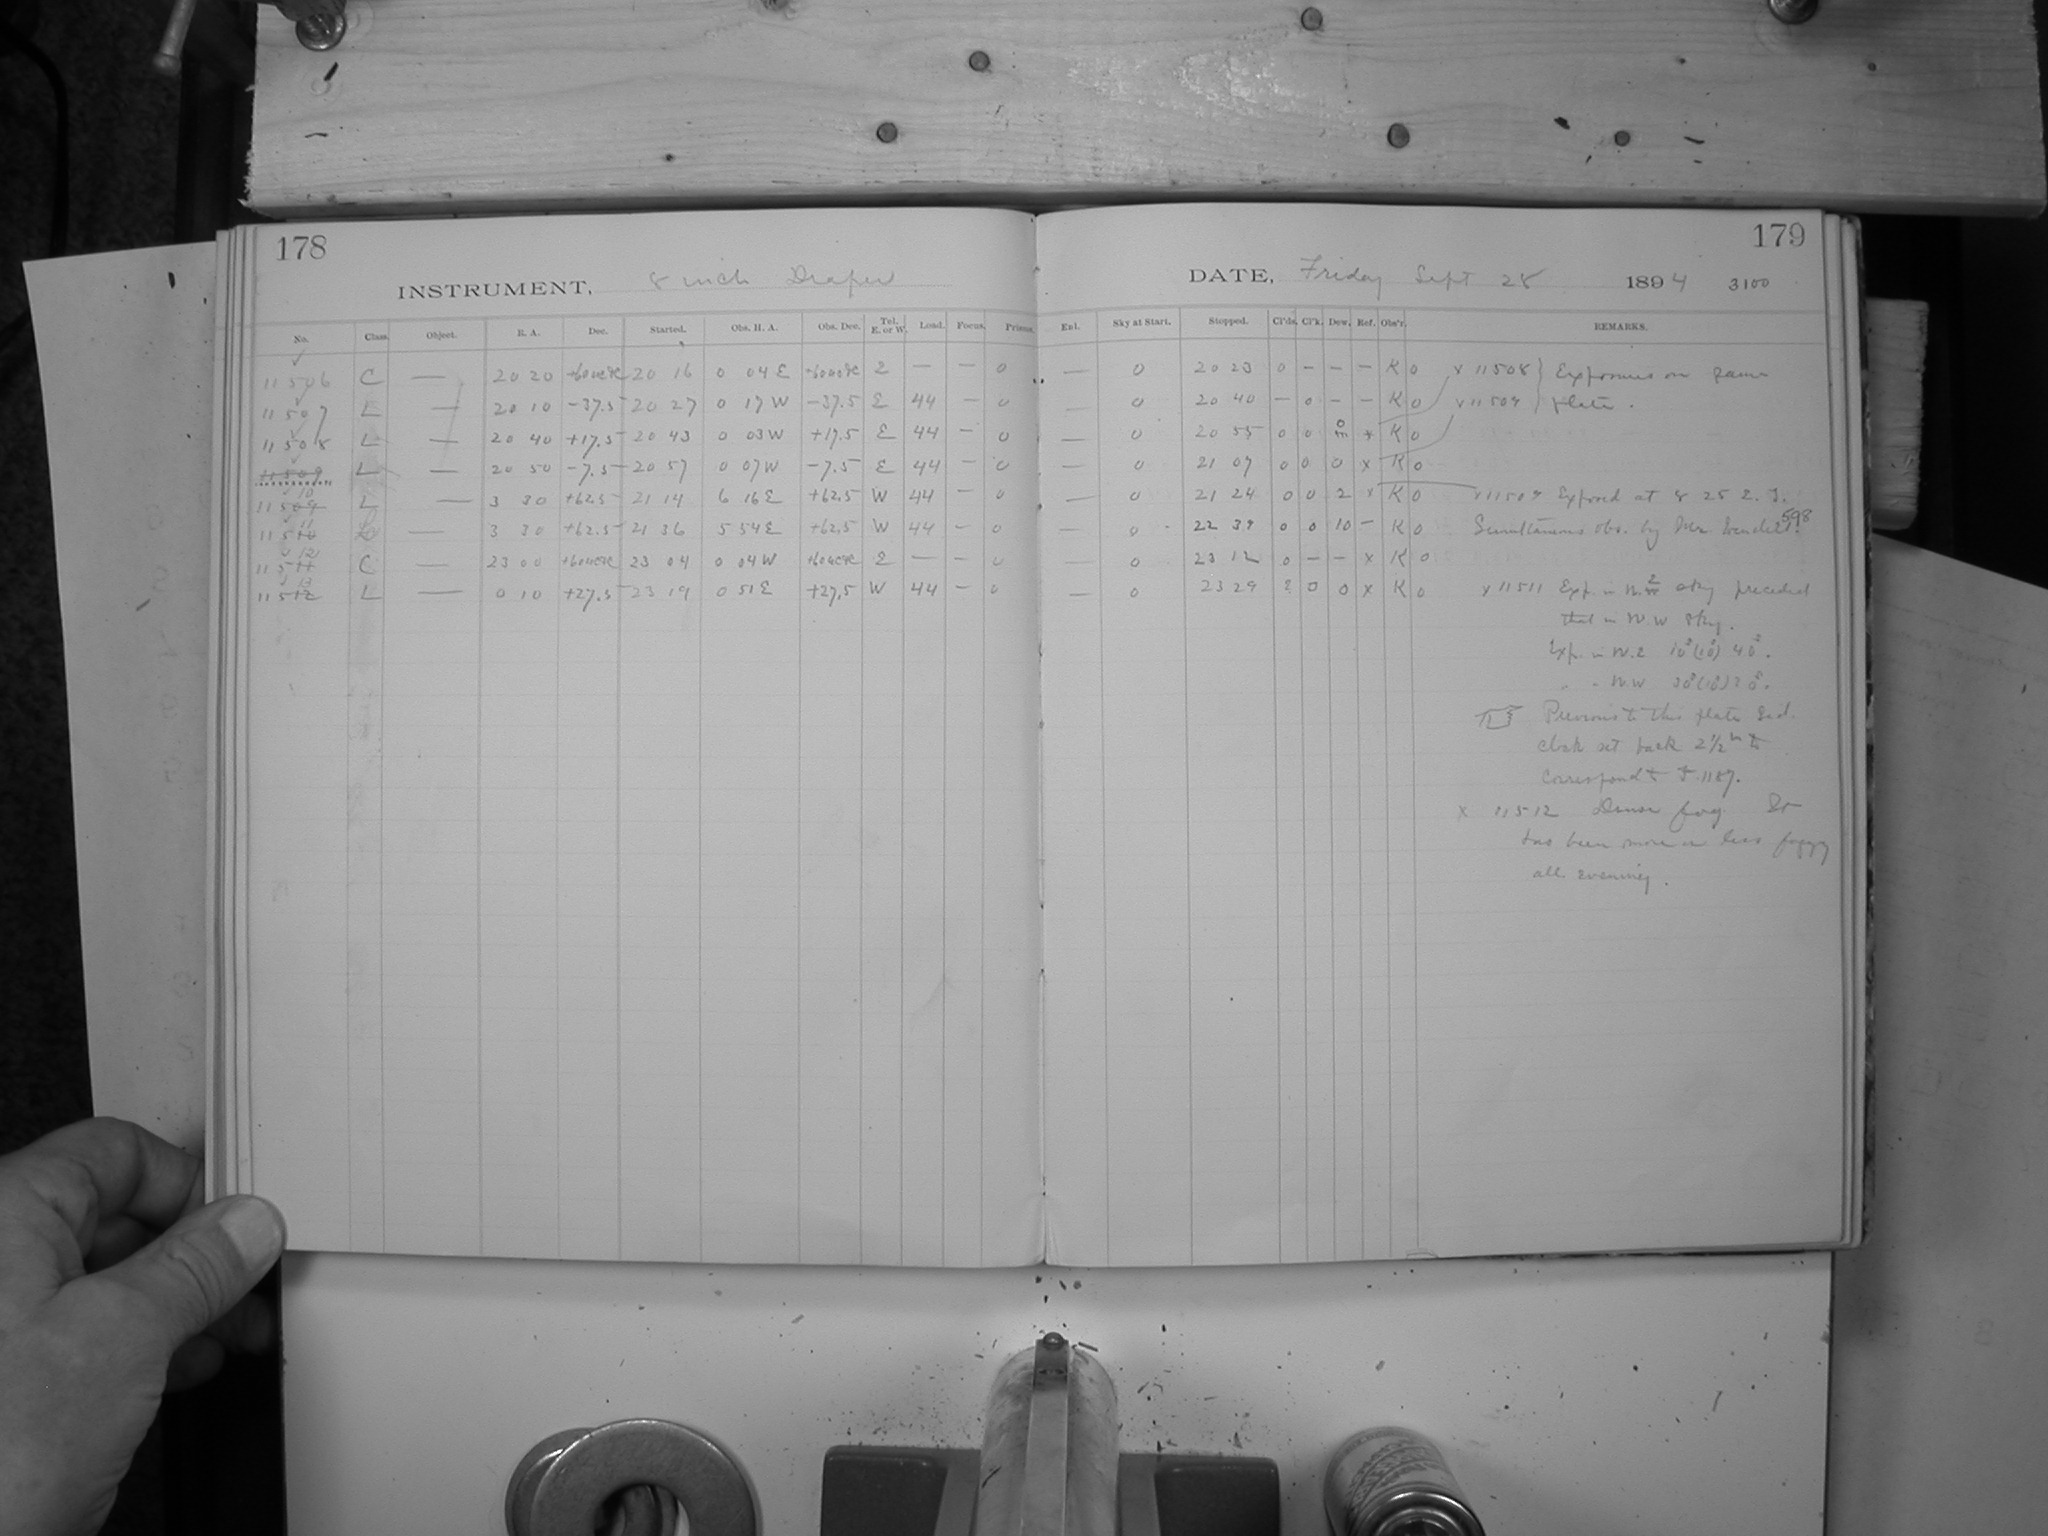 178
INSTRUMENT, 8 inch Draper
No. Class Object. R. A. Dec. Started. Obs. H. A. Obs. Dec. Tel. E. or W. Load. Focus. Prisms.
11506 C — 20 20 20 16 0 04 E — — 0
11507 L — 20 10 -37.5 20 27 0 17 W -37.5 E 44 — 0
11508 L — 20 40 +17.5 20 43 0 03 W +17.5 E 44 — 0
11509 L — 20 50 -7.5 20 57 0 07 W -7.5 E 44 — 0
10
11509 L — 3 30 +62.5 21 14 6 16 E +62.5 W 44 — 0
11
11510 — 3 30 +62.5 21 36 5 54 E +62.5 W 44 — 0
12
11511 C — 23 00 23 04 0 04 W — — 0
13
11512 L — 0 10 +27.5 23 19 0 51 E +27.5 W 44 — 0
179
DATE, Friday Sept 28 1894 3100
Enl. Sky at Start. Stopped. Cl'ds. Cl'k. Dew. Ref. Obs'r. REMARKS.
— 0 20 23 0 — — — K 0 x 11508 } Exposures on same
— 0 20 40 — 0 — — K 0 x 11509 } plate.
— 0 20 55 0 0 x K 0
— 0 21 07 0 0 0 x K 0
— 0 21 24 0 0 2 x K 0 x 11509 Exposed at 8 25 E. T.
— 0 22 39 0 0 10 — K 0 Simultaneous obs. by Mr. Wendell. 598
— 0 23 12 0 — — x K 0
— 0 23 29 2 0 0 x K 0 x 11511 Exp. in sky preceded
that in N.W sky.
Exp. in N.E 10s (10s) 40s.
" - N.W 30s (10s) 20s.
Previous to this plate Sid.
clock set back 2½h to
correspond to 1187.
x 11512 Dense fog It
has been more or less foggy
all evening.